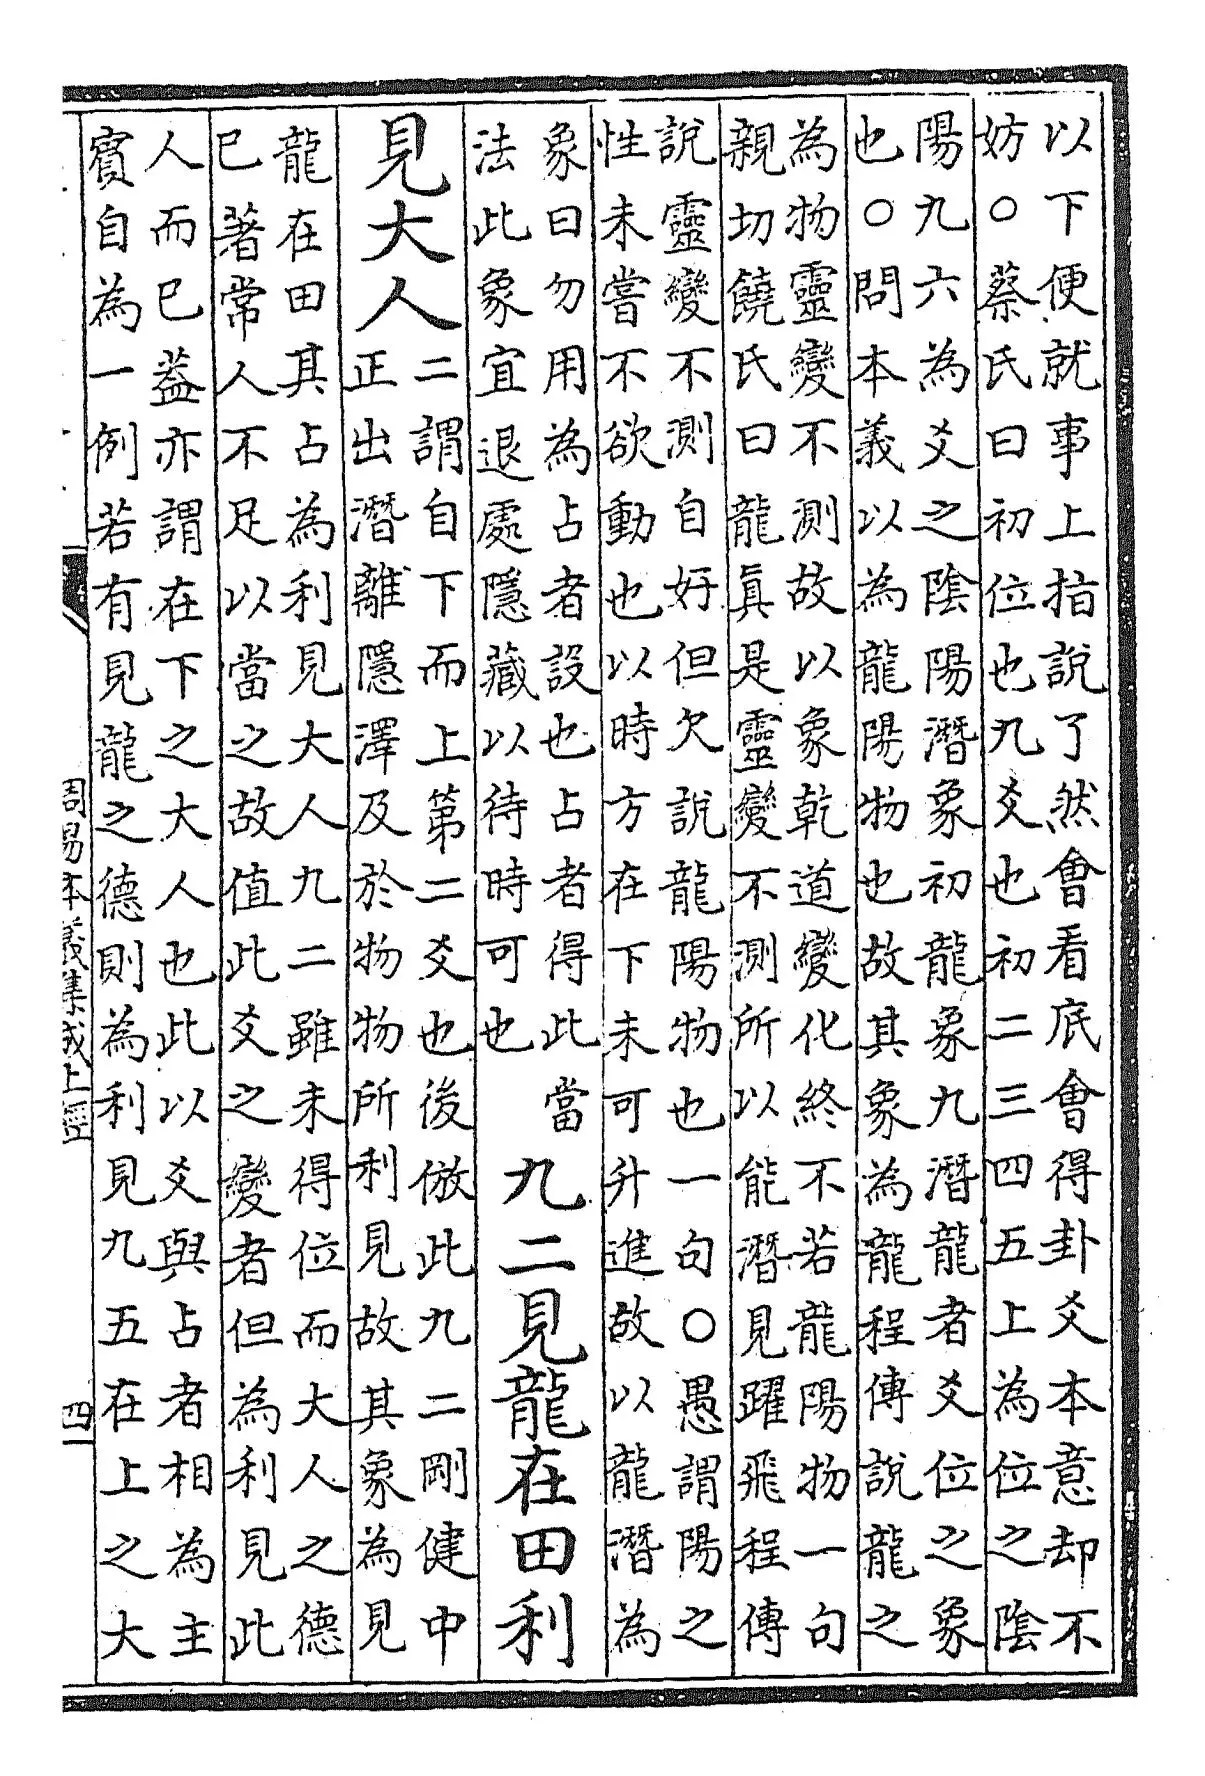 以下便就事上指說了然會看底會得卦爻本意却不
妨○蔡氏曰初位也九爻也初二三四五上為位之陰
陽九六為爻之陰陽潛象初龍象九潛龍者爻位之象
也○問本義以為龍陽物也故其象為龍程傳說龍之
為物靈變不測故以象乾道變化終不若龍陽物一句
親切饒氏曰龍真是靈變不測所以能潛見躍飛程傳
說靈變不測自好但欠說龍陽物也一句○愚謂陽之
性未嘗不欲動也以時方在下未可升進故以龍潛為
象曰勿用為占者設也占者得此當
法此象宜退處隱藏以待時可也
九二見龍在田利
見大人
二謂自下而上第二爻也後倣此九二剛健中
正出潛離隱澤及於物物所利見故其象為見
龍在田其占為利見大人九二雖未得位而大人之德
已著常人不足以當之故值此爻之變者但為利見此
人而已蓋亦謂在下之大人也此以爻與占者相為主
賓自為一例若有見龍之德則為利見九五在上之大
周易本義集成上經
四